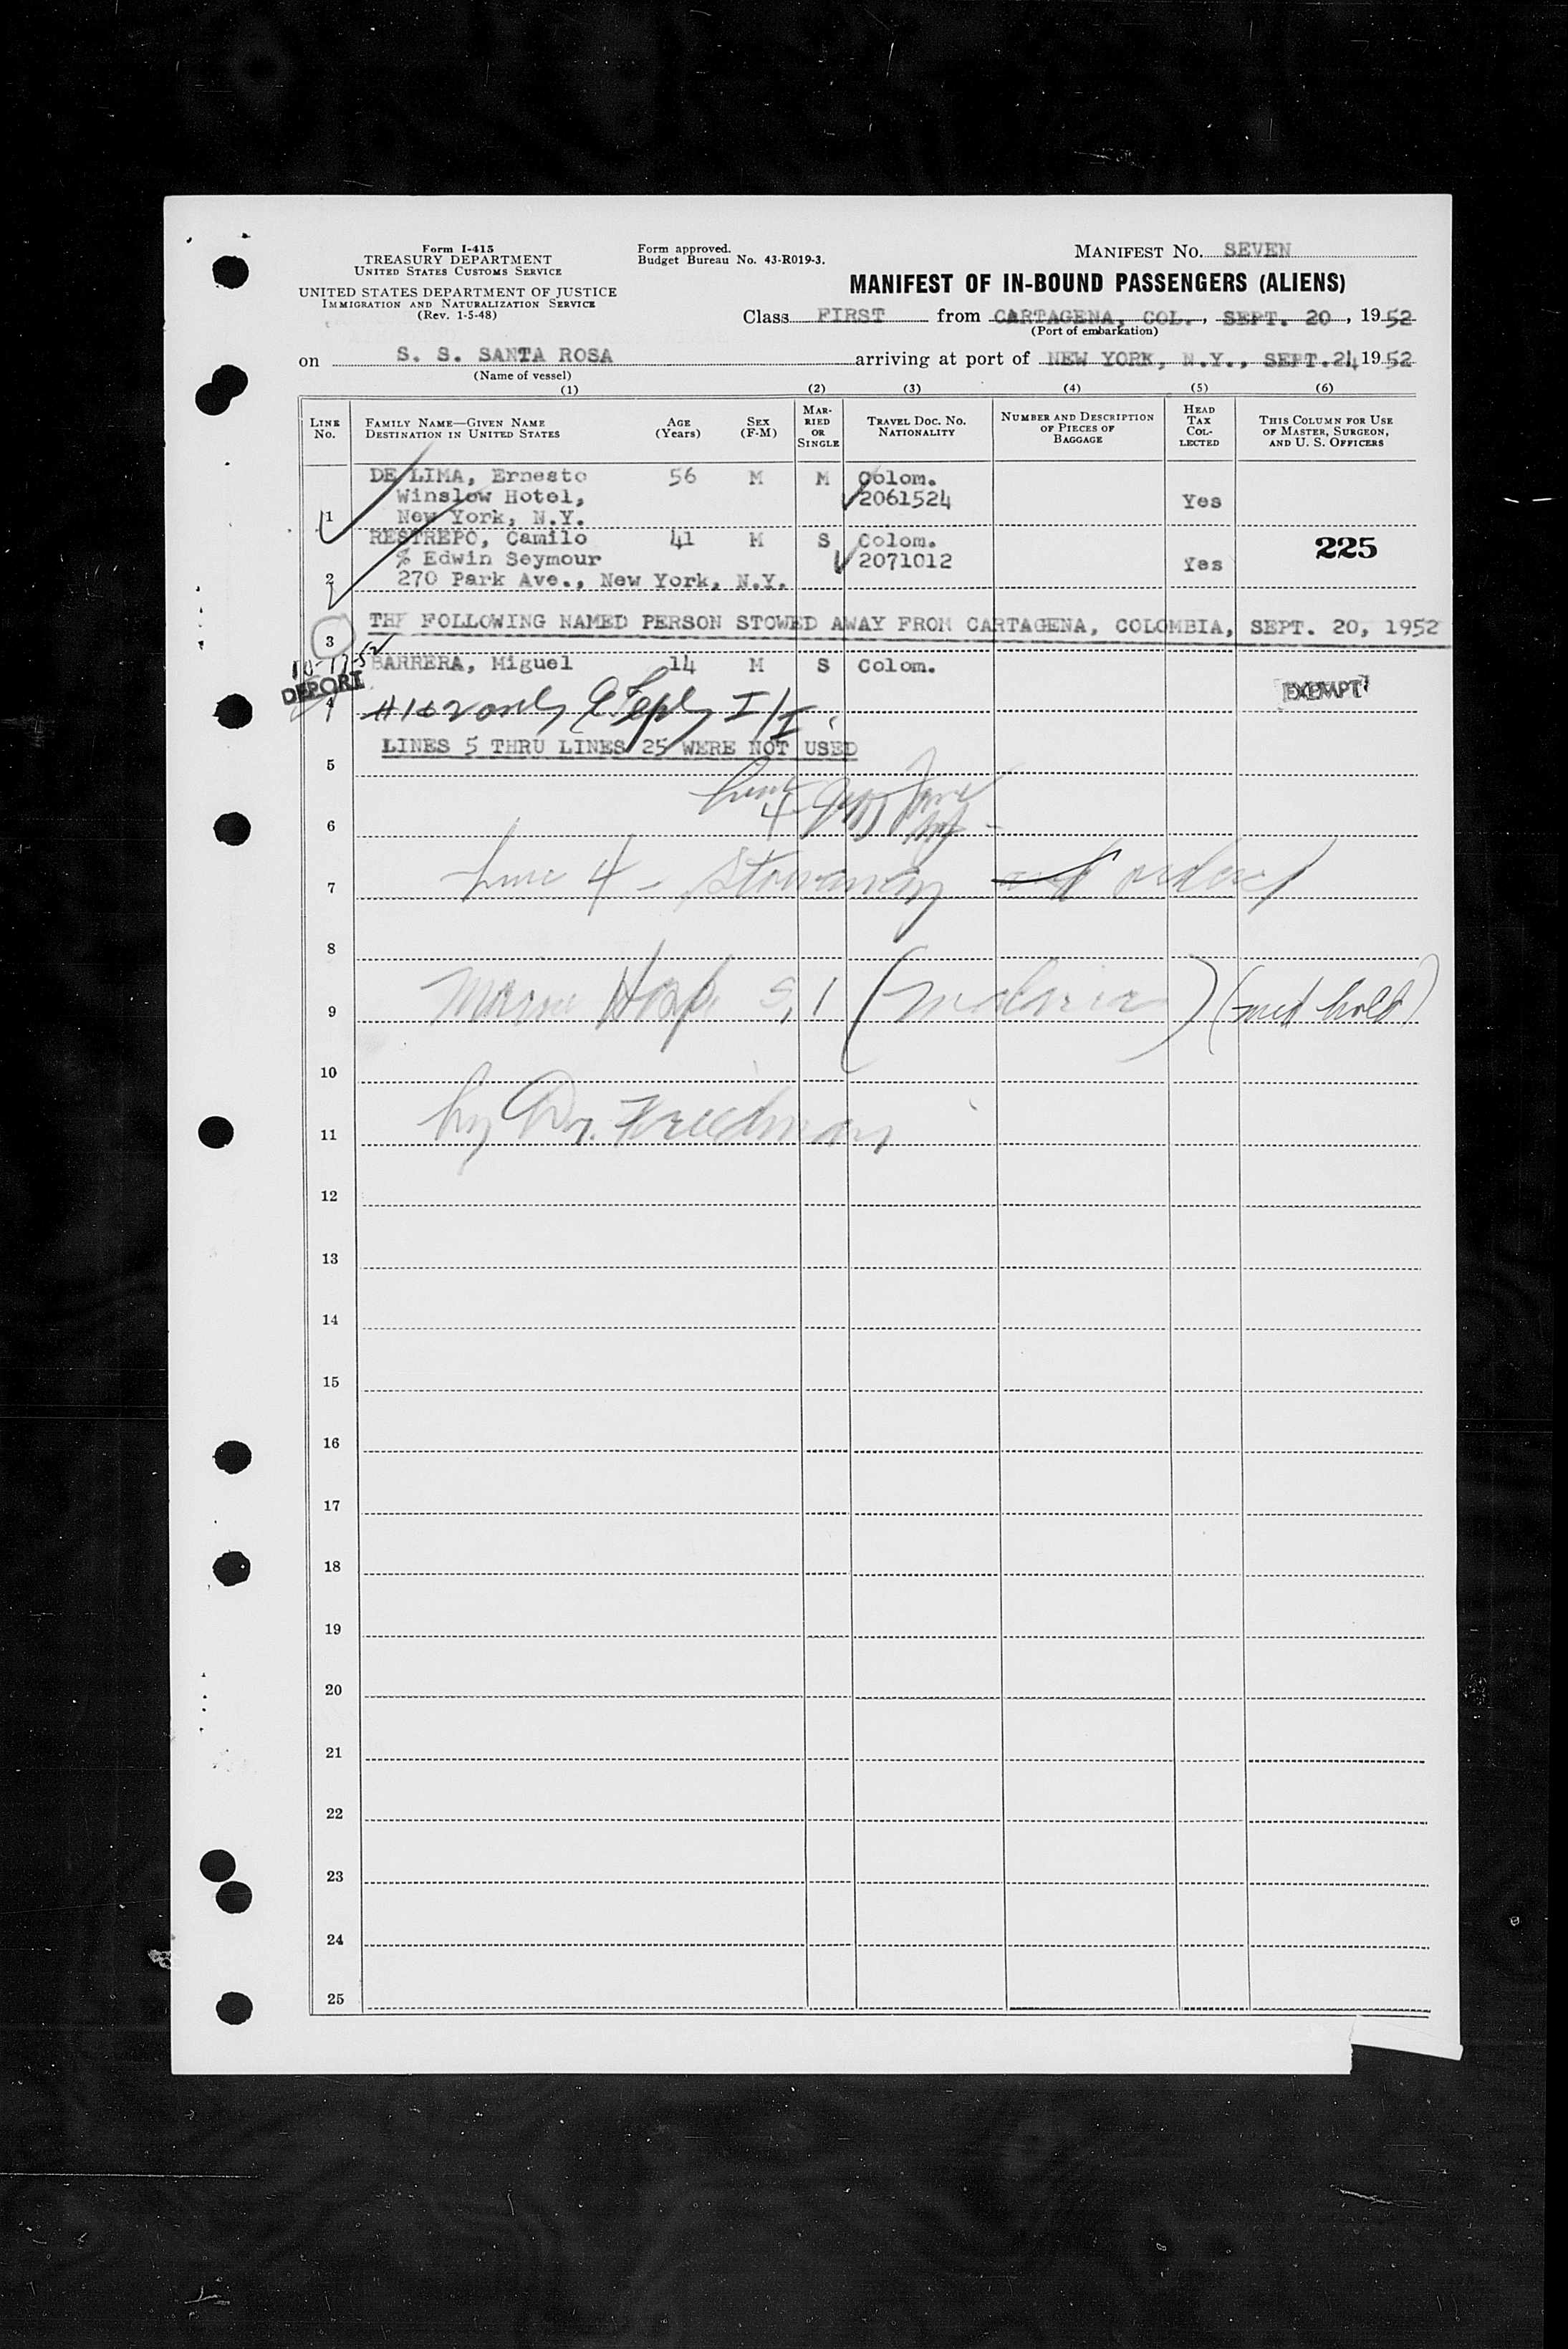 Form I-415
TREASURY DEPARTMENT
UNITED STATES CUSTOMS SERVICE
UNITED STATES DEPARTMENT OF JUSTICE
IMMIGRATION AND NATURALIZATION SERVICE
(Rev. 1-5-48)
Form approved.
Budget Bureau No. 43-R019-3.
MANIFEST No. SEVEN
MANIFEST OF IN-BOUND PASSENGERS (ALIENS)
Class FIRST from CARTAGENA, COL., SEPT. 20, 1952
(Port of embarkation)
on S. S. SANTA ROSA arriving at port of NEW YORK, N.Y., SEPT. 24 1952
(Name of vessel)
(1) (2) (3) (4) (5) (6)
LINE No.
FAMILY NAME—GIVEN NAME
DESTINATION IN UNITED STATES
AGE (Years)
SEX (F-M)
MARRIED OR SINGLE
TRAVEL DOC. No. NATIONALITY
NUMBER AND DESCRIPTION OF PIECES OF BAGGAGE
HEAD TAX COLLECTED
THIS COLUMN FOR USE OF MASTER, SURGEON, AND U. S. OFFICERS
DE LIMA, Ernesto 56 M M Colom.
Winslow Hotel, 2061524 Yes
1 New York, N.Y.
RESTREPO, Camilo 41 M S Colom. 225
% Edwin Seymour 2071012 Yes
2 270 Park Ave., New York, N.Y.
3 THE FOLLOWING NAMED PERSON STOWED AWAY FROM CARTAGENA, COLOMBIA, SEPT. 20, 1952
10-17-52
BARRERA, Miguel 14 M S Colom.
DEPORT
EXEMPT
4 #1&2 only
LINES 5 THRU LINES 25 WERE NOT USED
5
Line 4
6
7 Line 4 - Stowaway ordered
8
9 Marine Hosp. S.I (malaria) (med hold)
10
11 by Dr. Friedman
12
13
14
15
16
17
18
19
20
21
22
23
24
25